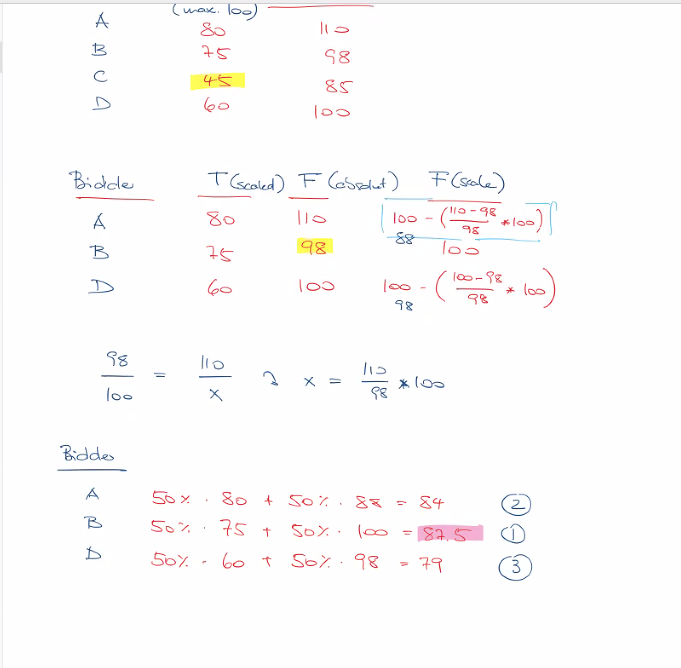 (max. 100)
A 80 110
B 75 98
C 45 85
D 60 100
Bidder T (scaled) F (absolut) F (scale)
A 80 110 100 - (110-98/98 * 100)
88
B 75 98 100
D 60 100 100 - (100-98/98 * 100)
98
98/100 = 110/x ? x = 110/98 * 100
Bidder
A 50% · 80 + 50% · 88 = 84 2
B 50% · 75 + 50% · 100 = 87.5 1
D 50% · 60 + 50% · 98 = 79 3